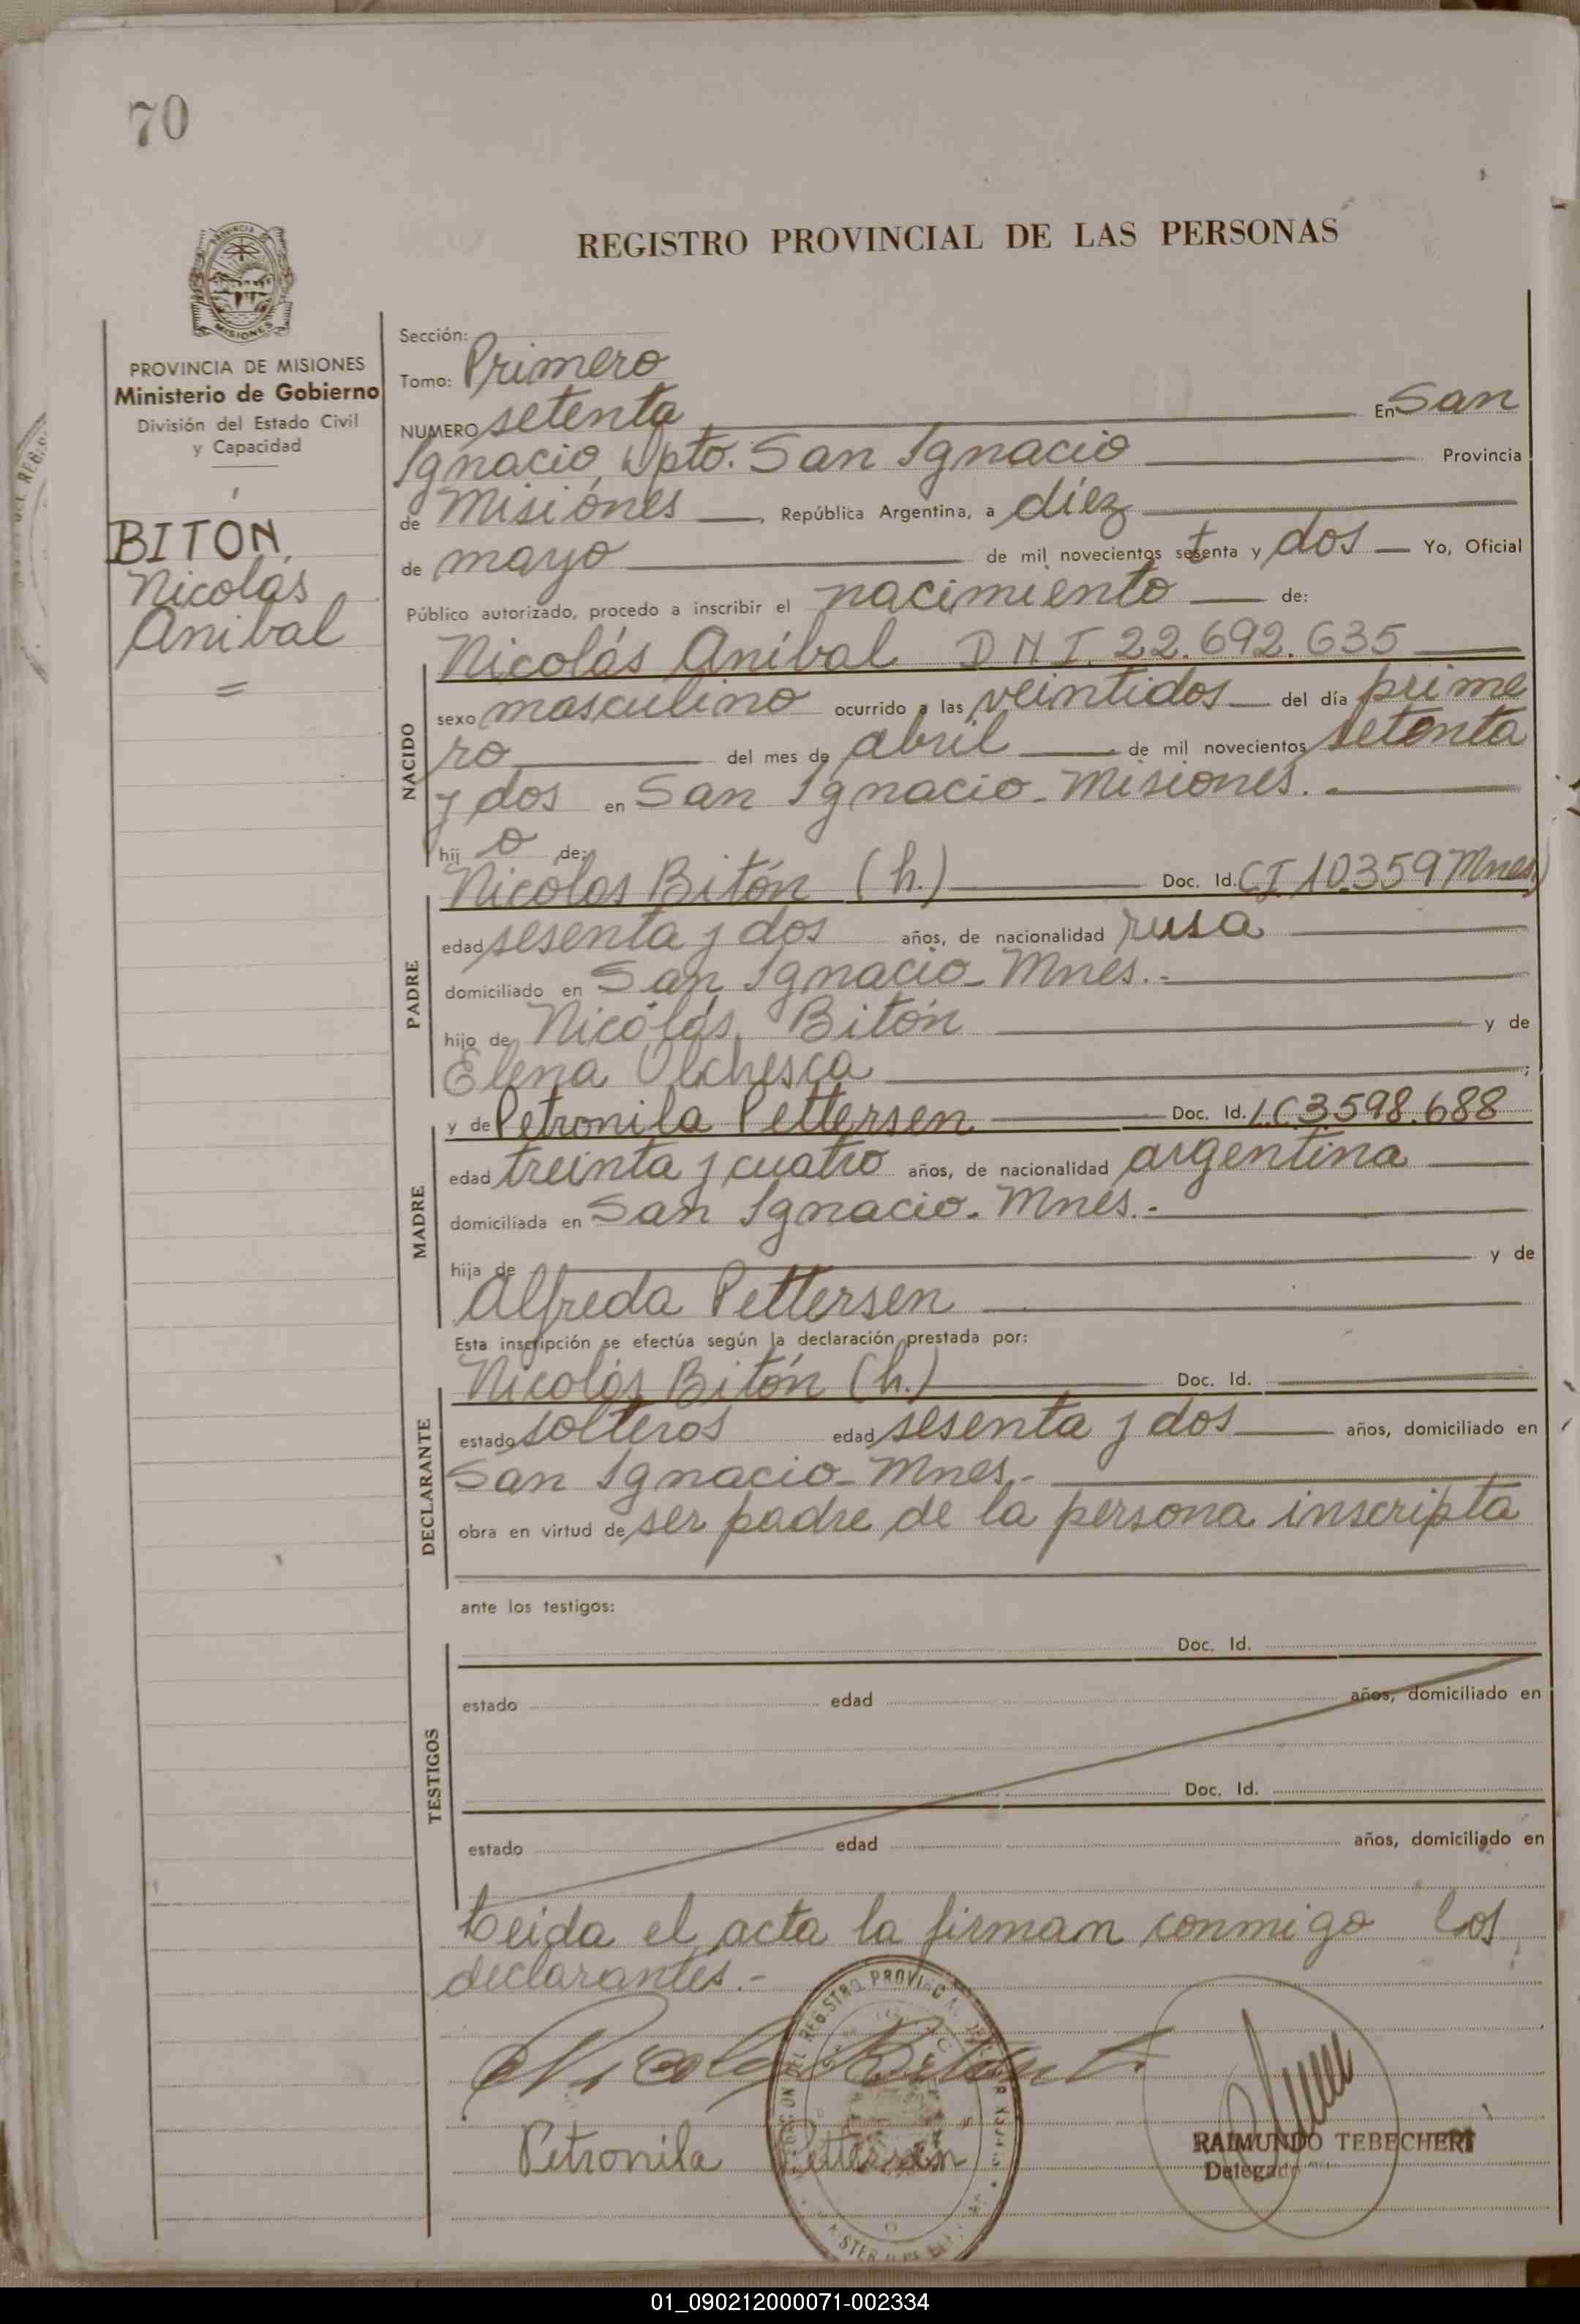 70
REGISTRO PROVINCIAL DE LAS PERSONAS
MISIONES
PROVINCIA DE MISIONES
Ministerio de Gobierno
División del Estado Civil
y Capacidad
BITON,
Nicolás
Anibal
=
Sección:
Tomo: Primero
NUMERO setenta En San
Ignacio, Dpto. San Ignacio Provincia
de Misiónes, República Argentina, a diez
de mayo de mil novecientos setenta y dos Yo, Oficial
Público autorizado, procedo a inscribir el nacimiento de:
Nicolás Aníbal D N I. 22.692.635
NACIDO
sexo masculino ocurrido a las veintidos del día prime
ro del mes de abril de mil novecientos setenta
y dos en San Ignacio - Misiones.
hij o de:
Nicolas Bitón (h.) Doc. Id. C.I 10.359 Mnes)
PADRE
edad sesenta y dos años, de nacionalidad rusa
domiciliado en San Ignacio - Mnes.-
hijo de Nicólás Bitón y de
Elena Olchesca;
y de Petronila Pettersen Doc. Id. L.C 3.598.688
MADRE
edad treinta y cuatro años, de nacionalidad argentina
domiciliada en San Ignacio - Mnes.-
hija de y de
Alfreda Pettersen
Esta inscripción se efectúa según la declaración prestada por:
Nicolás Bitón (h.) Doc. Id.
DECLARANTE
estado solteros edad sesenta y dos años, domiciliado en
San Ignacio - Mnes.-
obra en virtud de ser padre de la persona inscripta
ante los testigos:
TESTIGOS
Doc. Id.
estado edad años, domiciliado en
Doc. Id.
estado edad años, domiciliado en
Leida el acta la firman conmigo los
declarantes.-
Nicolas Biton h.
Petronila Pettersen
RAIMUNDO TEBECHERI
Delegado
01_090212000071-002334